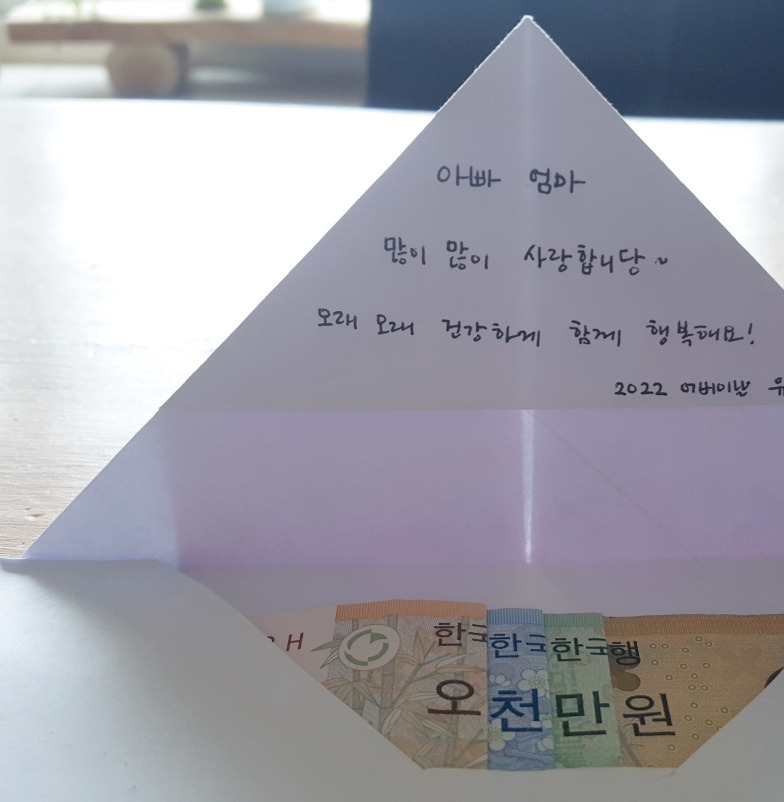 아빠 엄마
많이 많이 사랑합니당~
오래 오래 건강하게 함께 행복해요!
2022 어버이날
H
한국 한국 한국 행
오천만원